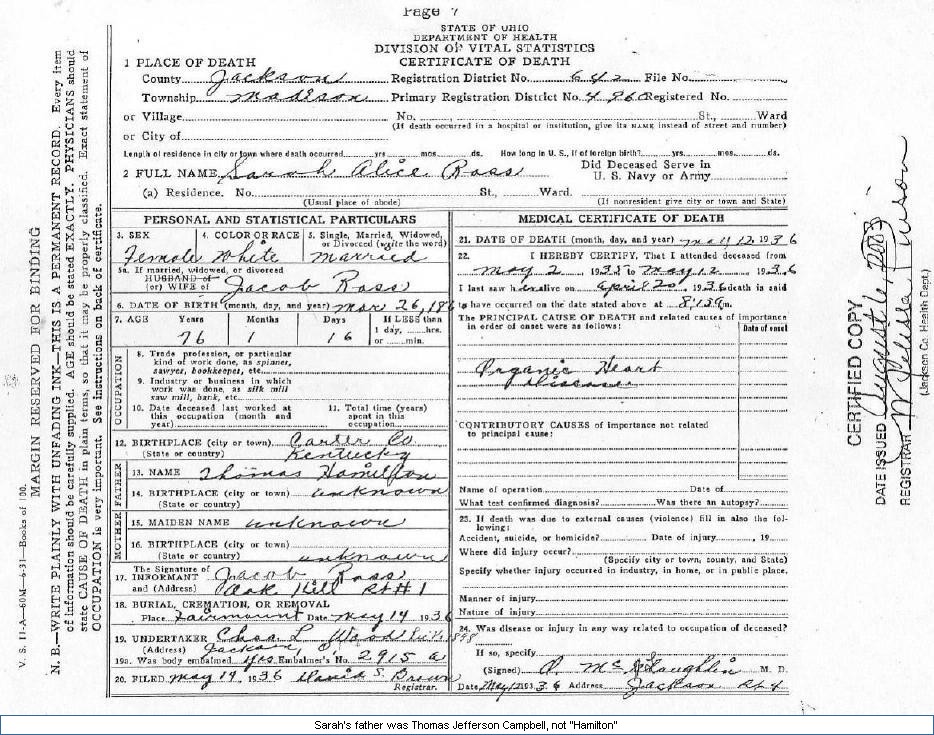 Page 7
STATE OF OHIO
DEPARTMENT OF HEALTH
DIVISION OF VITAL STATISTICS
CERTIFICATE OF DEATH
1 PLACE OF DEATH
County Jackson Registration District No. 642 File No.
Township Madison Primary Registration District No. 4860 Registered No.
or Village No. St., Ward
(If death occurred in a hospital or institution, give its NAME instead of street and number)
or City of
Length of residence in city or town where death occurred yrs mos. ds. How long in U. S., if of foreign birth? yrs. mos. ds.
2 FULL NAME Sarah Alice Ross Did Deceased Serve in
U. S. Navy or Army
(a) Residence. No. St., Ward.
(Usual place of abode) (If nonresident give city or town and State)
PERSONAL AND STATISTICAL PARTICULARS
3. SEX 4. COLOR OR RACE 5. Single, Married, Widowed,
or Divorced (write the word)
Female White Married
5a. If married, widowed, or divorced
HUSBAND of
(or) WIFE of Jacob Ross
6. DATE OF BIRTH (month, day, and year) Mar 26, 186
7. AGE Years Months Days If LESS than
1 day, hrs.
or min.
76 1 16
OCCUPATION
8. Trade, profession, or particular
kind of work done, as spinner,
sawyer, bookkeeper, etc.
9. Industry or business in which
work was done, as silk mill
saw mill, bank, etc.
10. Date deceased last worked at
this occupation (month and
year)
11. Total time (years)
spent in this
occupation
12. BIRTHPLACE (city or town) Carter Co
(State or country) Kentucky
FATHER
13. NAME Thomas Hamilton
14. BIRTHPLACE (city or town) unknown
(State or country)
MOTHER
15. MAIDEN NAME unknown
16. BIRTHPLACE (city or town)
(State or country) unknown
The Signature of
17. INFORMANT Jacob Ross
and (Address) Oak Hill Rt #1
18. BURIAL, CREMATION, OR REMOVAL
Place Fairmount Date May 14 1936
19. UNDERTAKER Chas L Wood
(Address) Jackson, O
19a. Was body embalmed Yes Embalmer's No. 2915 a
20. FILED May 19 1936 David S. Brown
Registrar.
MEDICAL CERTIFICATE OF DEATH
21. DATE OF DEATH (month, day, and year) May 12 1936
22. I HEREBY CERTIFY, That I attended deceased from
May 2, 1935 to May 12, 1936
I last saw her alive on April 20 1936 death is said
to have occurred on the date stated above at m.
The PRINCIPAL CAUSE OF DEATH and related causes of importance
in order of onset were as follows:
Date of onset
Organic Heart
Disease
CONTRIBUTORY CAUSES of importance not related
to principal cause:
Name of operation Date of
What test confirmed diagnosis? Was there an autopsy?
23. If death was due to external causes (violence) fill in also the fol-
lowing:
Accident, suicide, or homicide? Date of injury, 19
Where did injury occur?
(Specify city or town, county, and State)
Specify whether injury occurred in industry, in home, or in public place.
Manner of injury
Nature of injury
24. Was disease or injury in any way related to occupation of deceased?
If so, specify
(Signed) McLaughlin M. D.
Date May 12 1936 Address Jackson Rt 4
V. S. 11-A—60M—6-31—Books of 100.
MARGIN RESERVED FOR BINDING
N. B.—WRITE PLAINLY WITH UNFADING INK—THIS IS A PERMANENT RECORD. Every item
of information should be carefully supplied. AGE should be stated EXACTLY. PHYSICIANS should
state CAUSE OF DEATH in plain terms, so that it may be properly classified. Exact statement of
OCCUPATION is very important. See instructions on back of certificate.
CERTIFIED COPY
DATE ISSUED August 12, 2003
REGISTRAR Melissa
(Jackson Co Health Dept.)
Sarah's father was Thomas Jefferson Campbell, not "Hamilton"